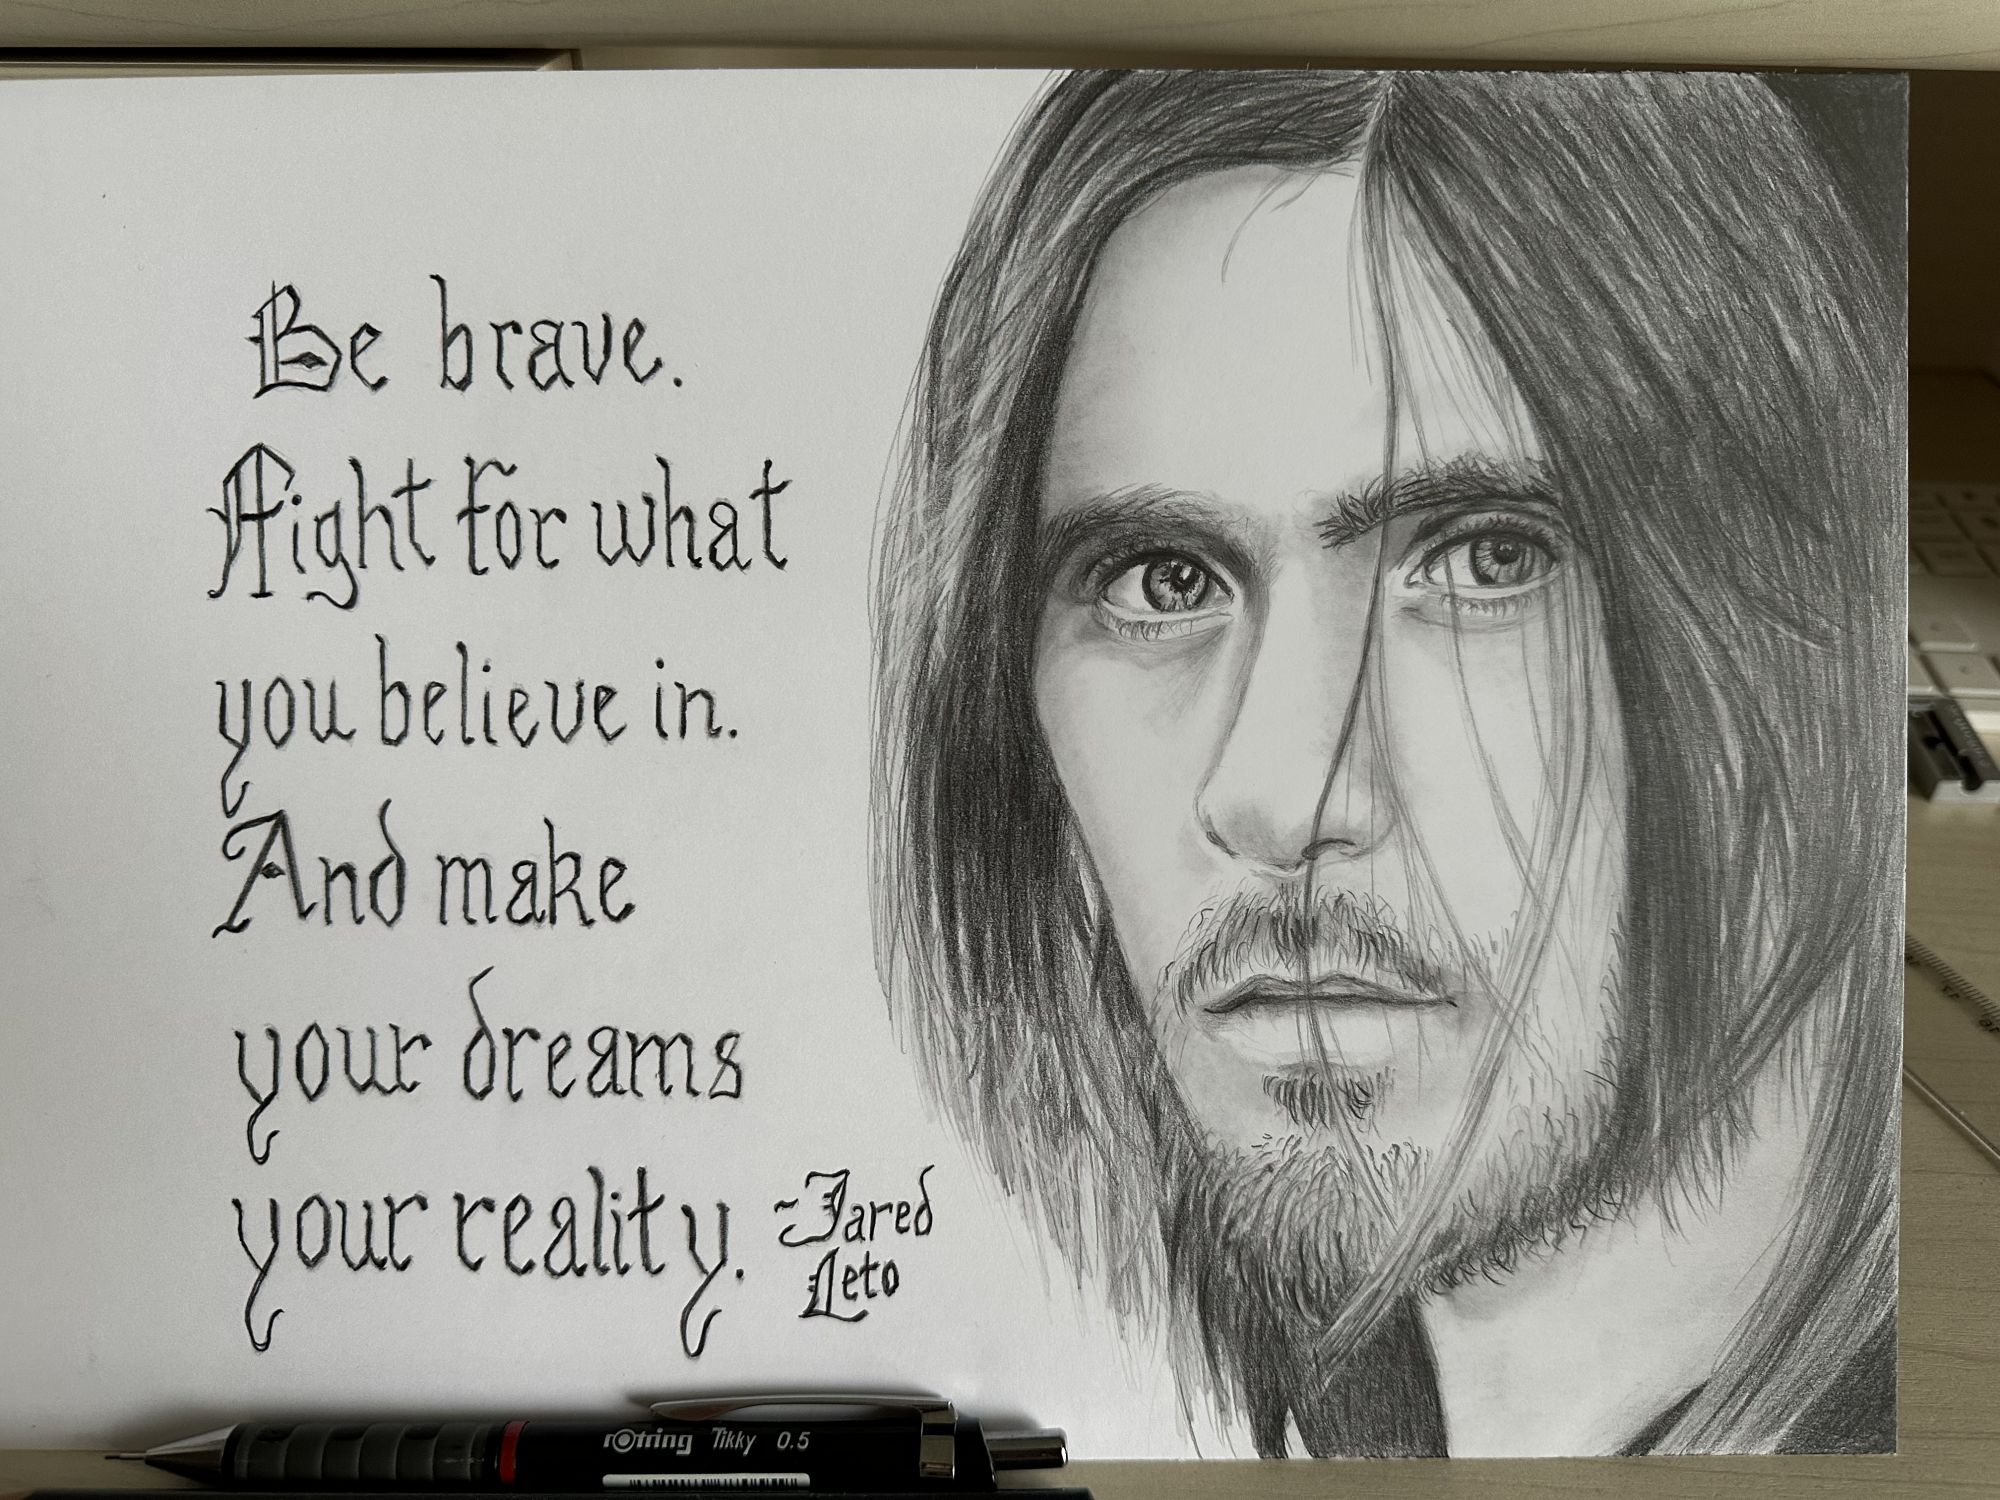 Be brave.
Fight for what
you believe in.
And make
your dreams
your reality.
~Jared
Leto
rotring Tikky 0.5